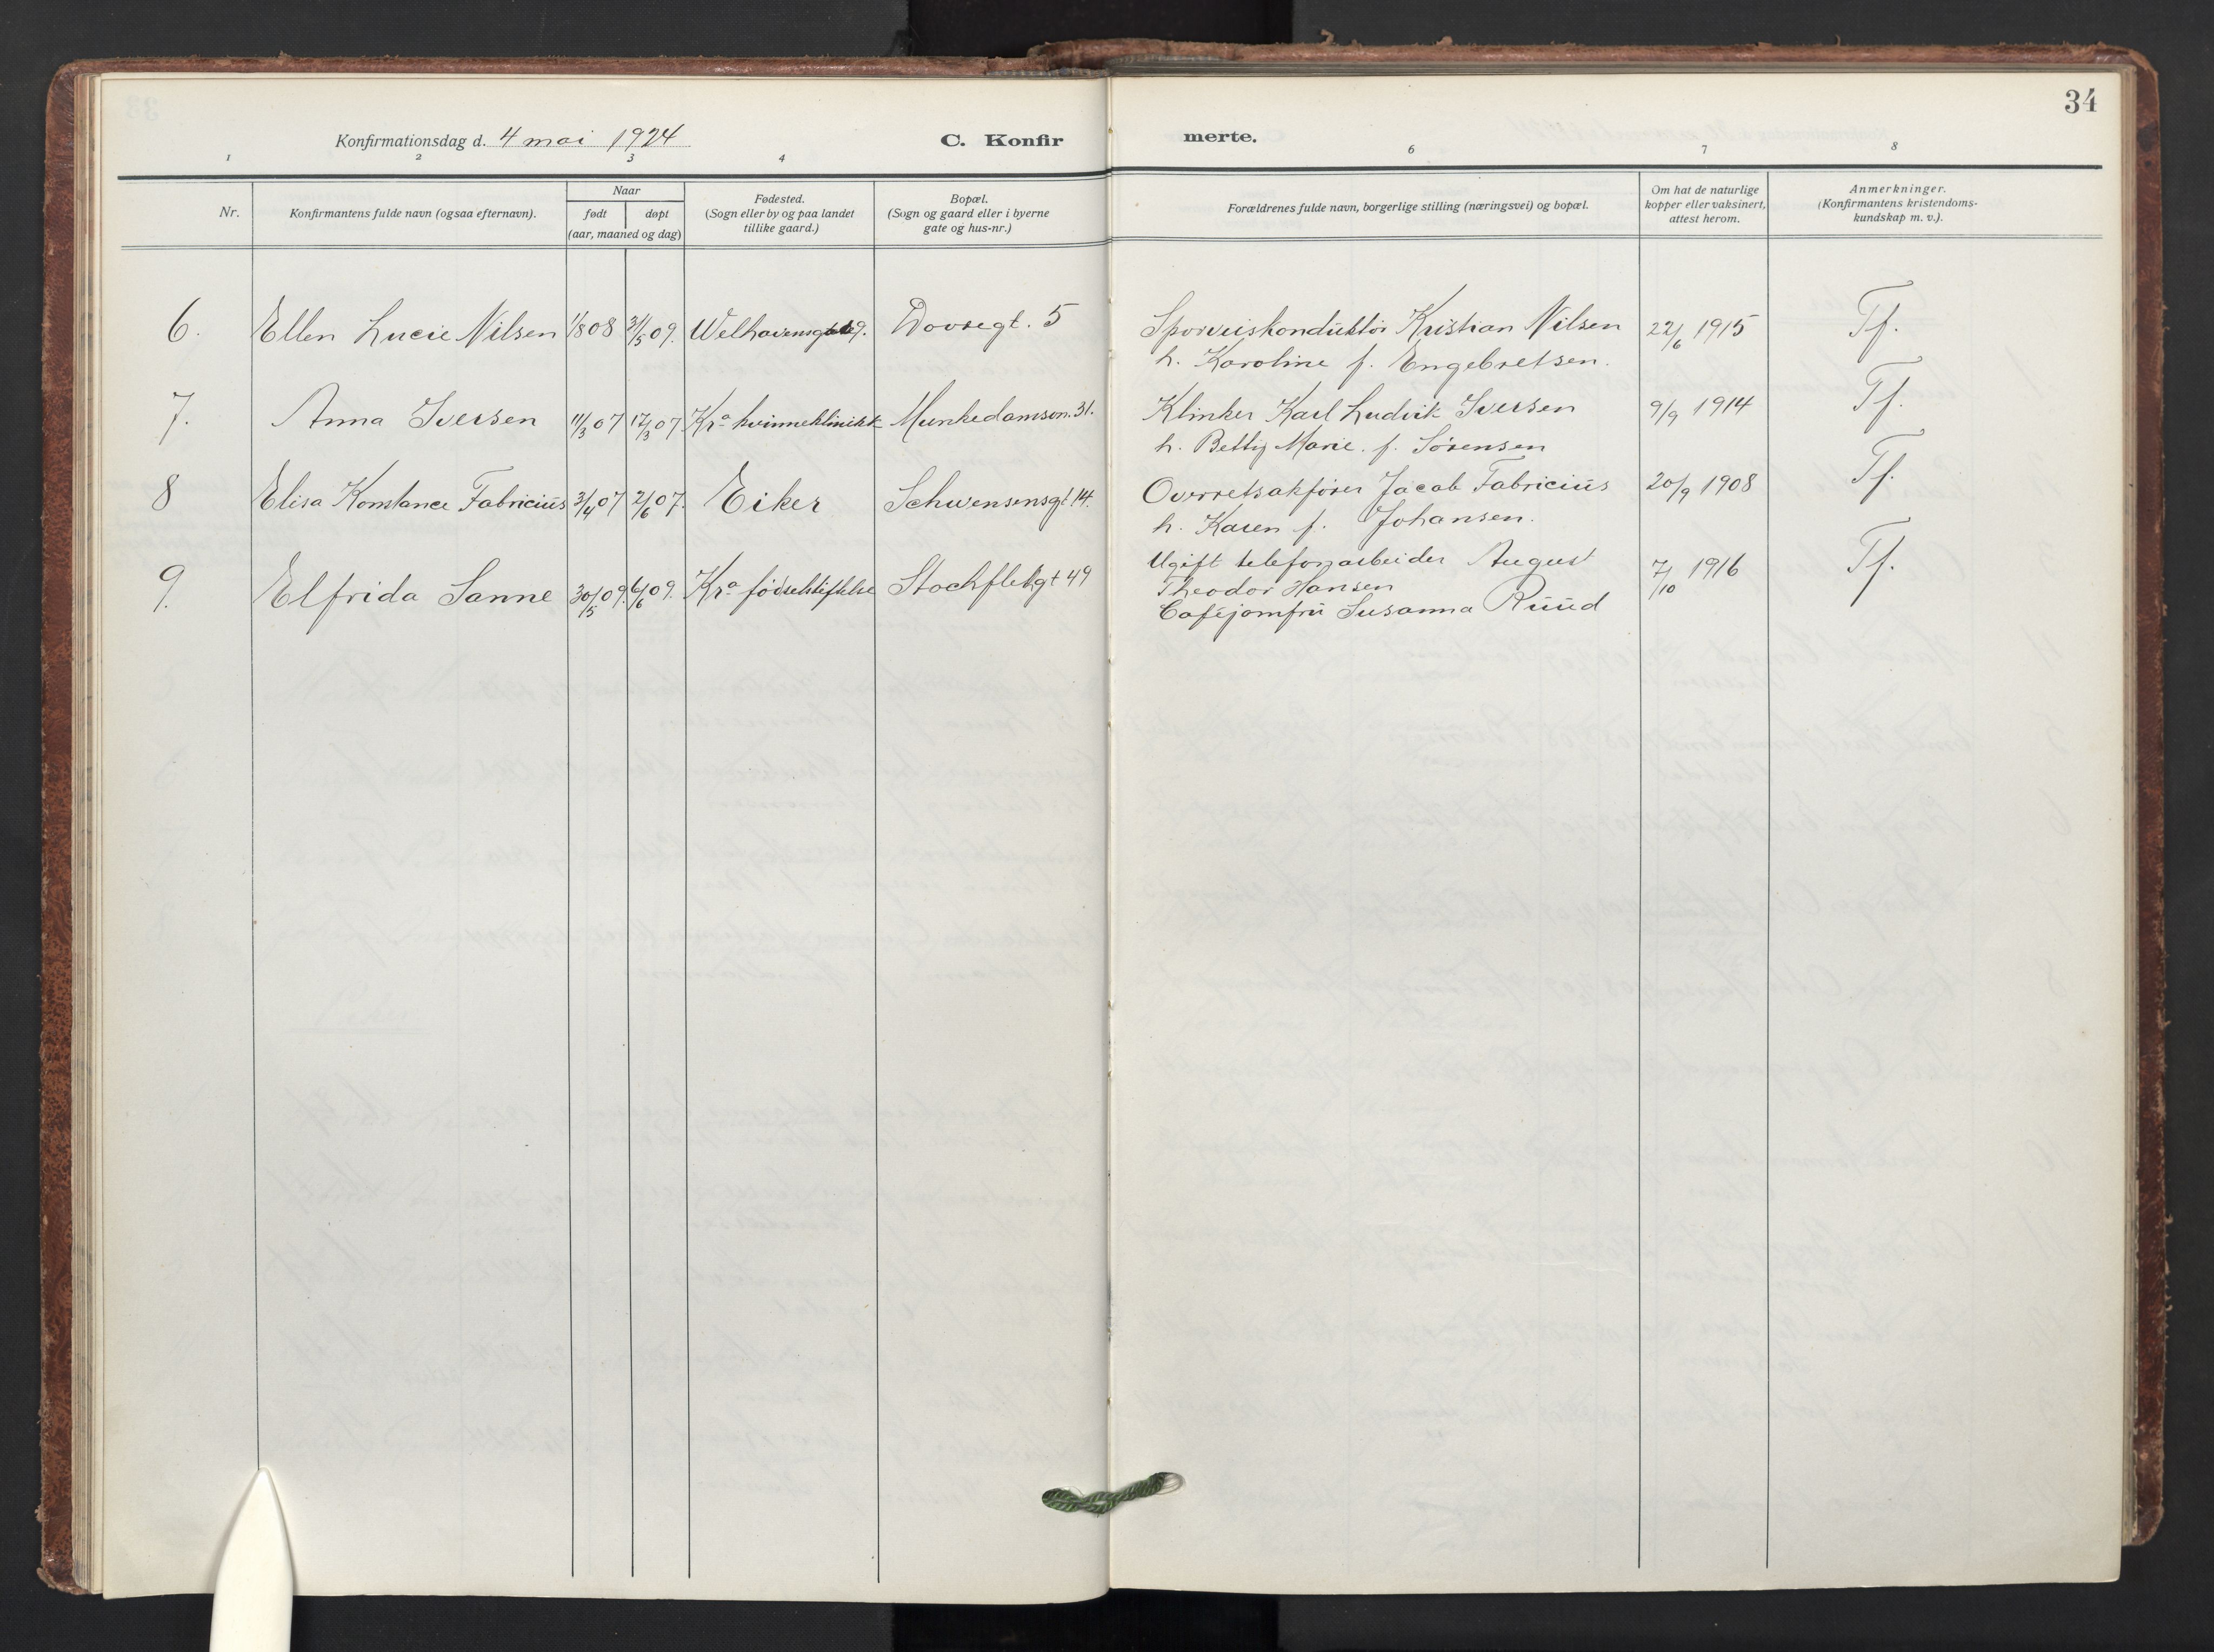 34
Konfirmationsdag d. 4 mai 1924
C. Konfir
merte.
1 2 3 4 6 7 8
Nr.
Konfirmantens fulde navn (ogsaa efternavn).
Naar
født
døpt
(aar, maaned og dag)
Fødested.
(Sogn eller by og paa landet
tillike gaard.)
Bopæl.
(Sogn og gaard eller i byerne
gate og hus-nr.)
Forældrenes fulde navn, borgerlige stilling (næringsvei) og bopæl.
Om hat de naturlige
kopper eller vaksinert,
attest herom.
Anmerkninger.
(Konfirmantens kristendoms-
kundskap m. v.).
6. Ellen Lucie Nilsen 1/8 08 31/5 09. Welhavensgate 9. Dovregt. 5 Sporveiskonduktør Kristian Nilsen 22/6 1915 Tf.
h. Karoline f. Engebretsen.
7. Anna Iversen 11/3 07 17/3 07 Kra kvinneklinikk Munkedamsvn. 31. Klinker Karl Ludvik Iversen 9/9 1914 Tf.
h. Betty Marie f. Sörensen
8 Elisa Konstance Fabricius 3/4 07 2/6 07. Eiker Schwensensgt 14. Overretsakfører Jacob Fabricius 20/9 1908 Tf.
h. Karen f. Johansen.
9. Elfrida Sanne 30/5 09. 6/6 09. Kra födselstiftelse Stockfletgt 49 Ugift telefonarbeider August 7/10 1916 Tf.
Theodor Hansen
Caféjomfru Susanna Ruud